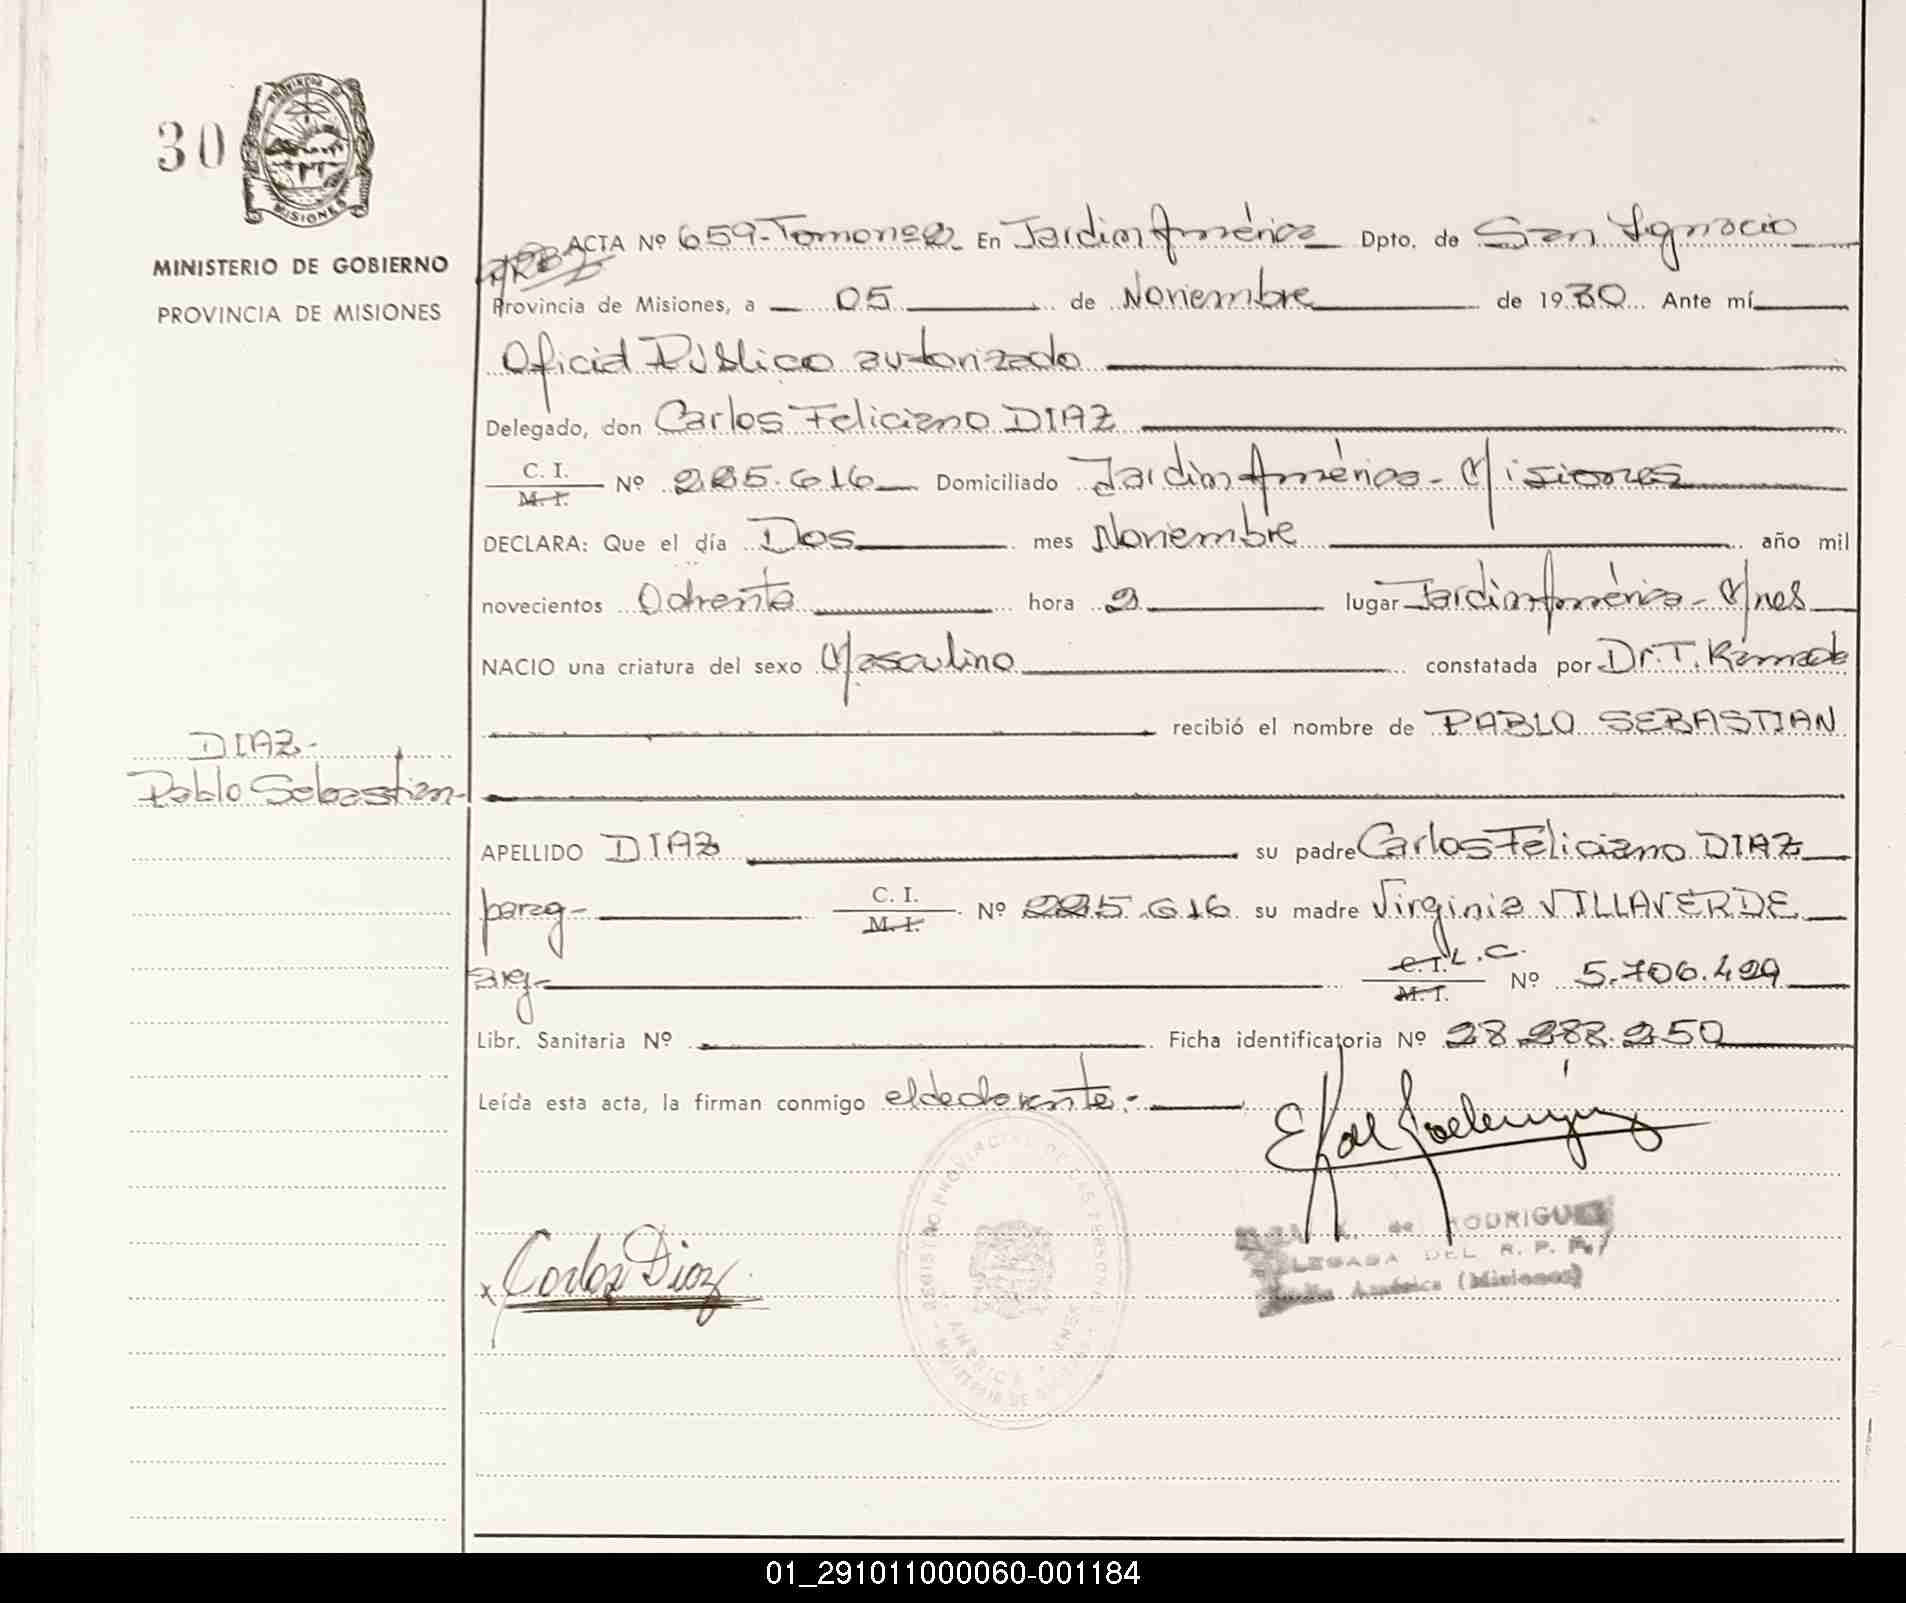 30
MISIONES
MINISTERIO DE GOBIERNO
PROVINCIA DE MISIONES
ACTA Nº 659-Tomonº2 En Jardin América Dpto. de San Ignacio
Provincia de Misiones, a 05 de Noviembre de 1980 Ante mí
Oficial Público autorizado
Delegado, don Carlos Feliciano DIAZ
C. I.
M. I. Nº 225.616 Domiciliado Jardin América - Misiones
DECLARA: Que el día Dos mes Noviembre año mil
novecientos Ochenta hora 2 lugar Jardin América - Mnes
NACIO una criatura del sexo Masculino constatada por Dr. T.
recibió el nombre de PABLO SEBASTIAN
DIAZ-
Pablo Sebastian-
APELLIDO DIAZ su padre Carlos Feliciano DIAZ
parag- C. I.
M. I. Nº 225.616 su madre Virginia VILLAVERDE
arg- C. I. L. C.
M. I. Nº 5.706.429
Libr. Sanitaria Nº Ficha identificatoria Nº 28.288.250
Leída esta acta, la firman conmigo el declarante.-
x Carlos Diaz
de RODRIGUEZ
DEL R. P. P.
América (Misiones)
01_291011000060-001184